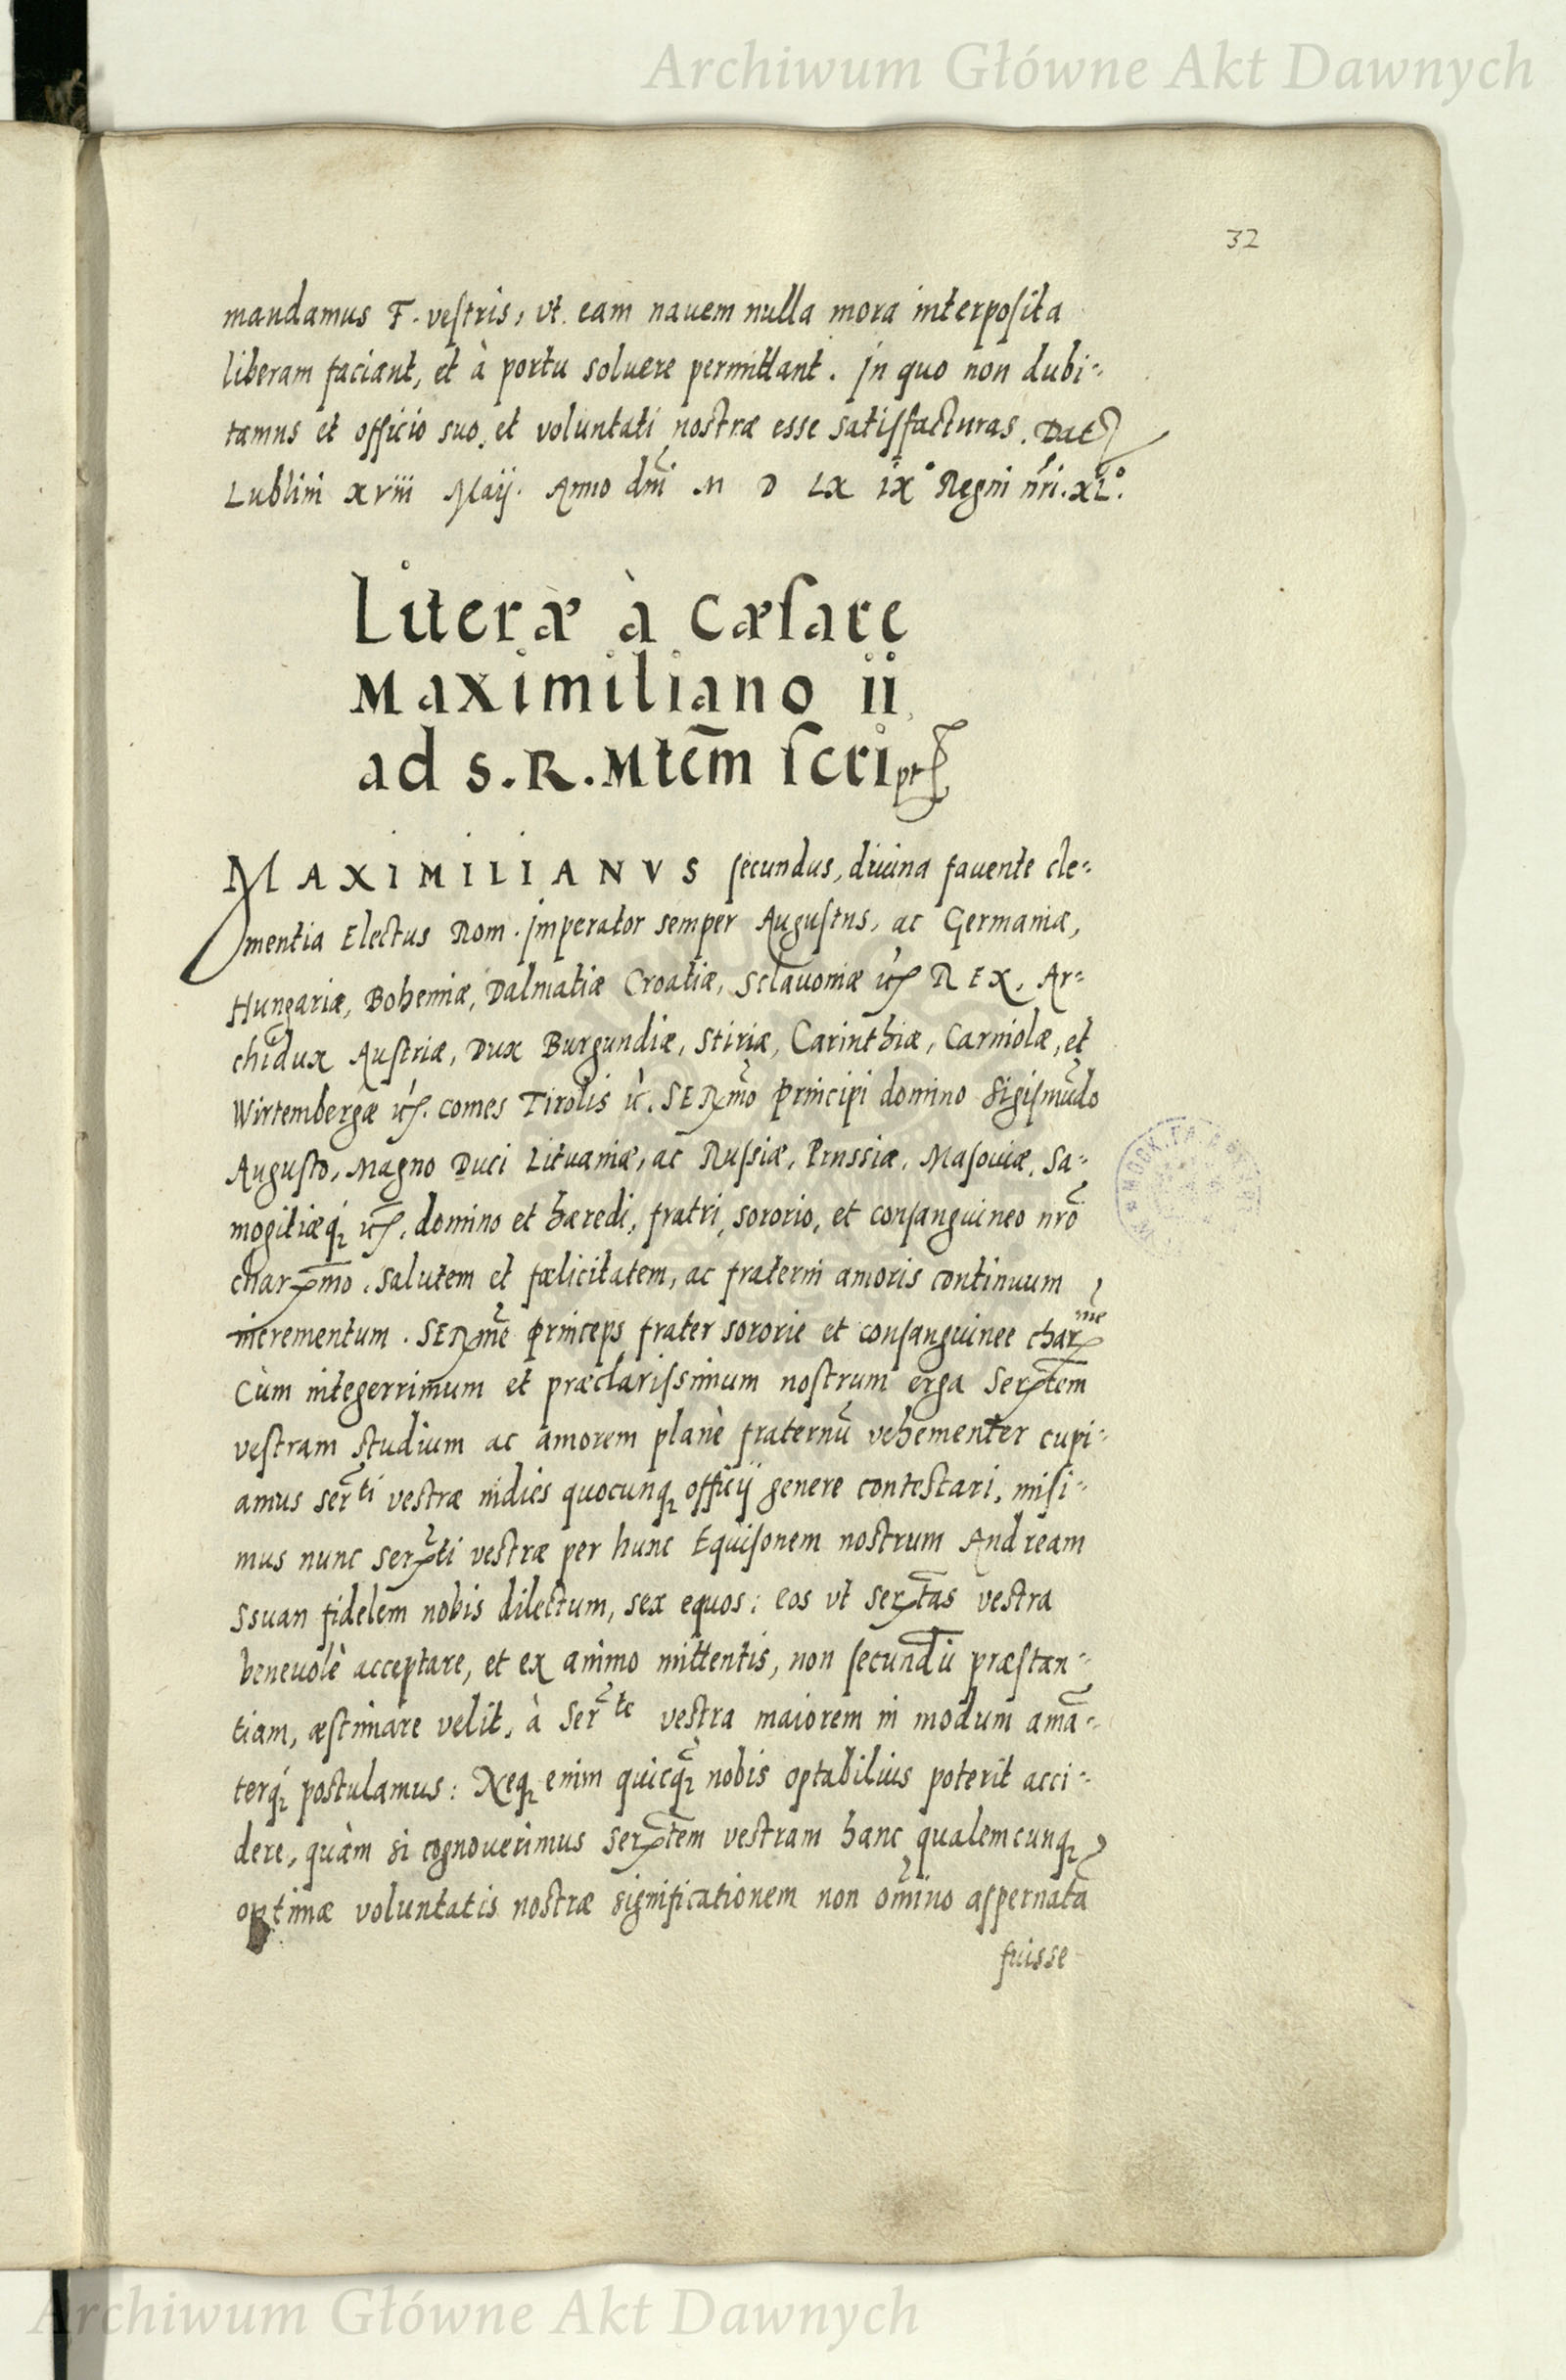 Archiwum Główne Akt Dawnych
32
mandamus F. vestris, vt eam nauem nulla mora interposita
liberam faciant, et à portu soluere permittant. In quo non dubi=
tamus et officio suo, et voluntati nostræ esse satisfacturas. Dat
Lublini xviii Maij. Anno dnī M D LX ix° Regni nrī. xL°.
Literæ à Cæsare
Maximiliano ii
ad S. R. Mtēm script
MAXIMILIANVS secundus, diuina fauente cle=
mentia Electus Rom. Imperator semper Augustus, ac Germaniæ,
Hungariæ, Bohemiæ, Dalmatiæ Croatiæ, Sclauoniæ ꝛc̃ REX, Ar=
chidux Austriæ, Dux Burgundiæ, Stiriæ, Carinthiæ, Carniolæ, et
Wirtembergæ ꝛc̃. comes Tirolis ꝛc̃. SERmō principi domino Sigismūdo
Augusto, Magno Duci Lituaniæ, ac Russiæ, Prussiæ, Masouiæ, Sa=
mogitiæq́ꝫ ꝛc̃. domino et hæredi, fratri, sororio, et consanguineo nrō
charmō. Salutem et fœlicitatem, ac fraterni amoris continuum
incrementum. SERmē princeps frater sororie et consanguinee charmē
Cùm integerrimum et præclarissimum nostrum erga Sertēm
vestram studium ac amorem planè fraternū vehementer cupi=
amus Serti vestræ indies quocunqꝫ officij genere contestari, misi=
mus nunc Serti vestræ per hunc Equisonem nostrum Andream
Ssuan fidelem nobis dilectum, sex equos: eos vt Sertas vestra
beneuolè acceptare, et ex animo mittentis, non secundū præstan=
tiam, æstimare velit, à Serte vestra maiorem in modum amā=
terq́ꝫ postulamus: Neqꝫ enim quicq̃ꝫ nobis optabilius poterit acci=
dere, quàm si cognouerimus Sertēm vestram hanc qualemcunqꝫ
optimæ voluntatis nostræ significationem non omīno aspernatā
fuisse
Archiwum Główne Akt Dawnych